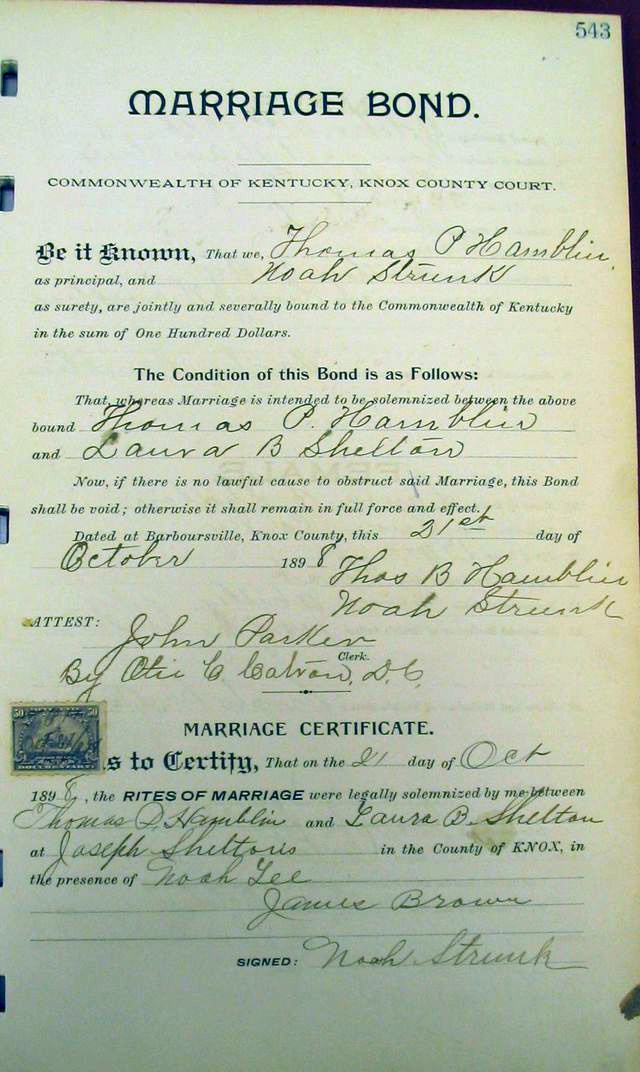 543
MARRIAGE BOND.
COMMONWEALTH OF KENTUCKY, KNOX COUNTY COURT.
Be it Known, That we, Thomas P Hamblin,
as principal, and Noah Strunk
as surety, are jointly and severally bound to the Commonwealth of Kentucky
in the sum of One Hundred Dollars.
The Condition of this Bond is as Follows:
That, whereas Marriage is intended to be solemnized between the above
bound Thomas P. Hamblin
and Laura B Shelton
Now, if there is no lawful cause to obstruct said Marriage, this Bond
shall be void; otherwise it shall remain in full force and effect.
Dated at Barboursville, Knox County, this 21st day of
October 1898
Thos B Hamblin
Noah Strunk
ATTEST:
John Parker
Clerk.
By Otis C Catron, D.C.
MARRIAGE CERTIFICATE.
50 50
s to Certify, That on the 21 day of Oct
1898, the RITES OF MARRIAGE were legally solemnized by me between
Thomas P. Hamblin and Laura B. Shelton
at Joseph Sheltons in the County of KNOX, in
the presence of Noah Lee
James Brown
SIGNED: Noah Strunk